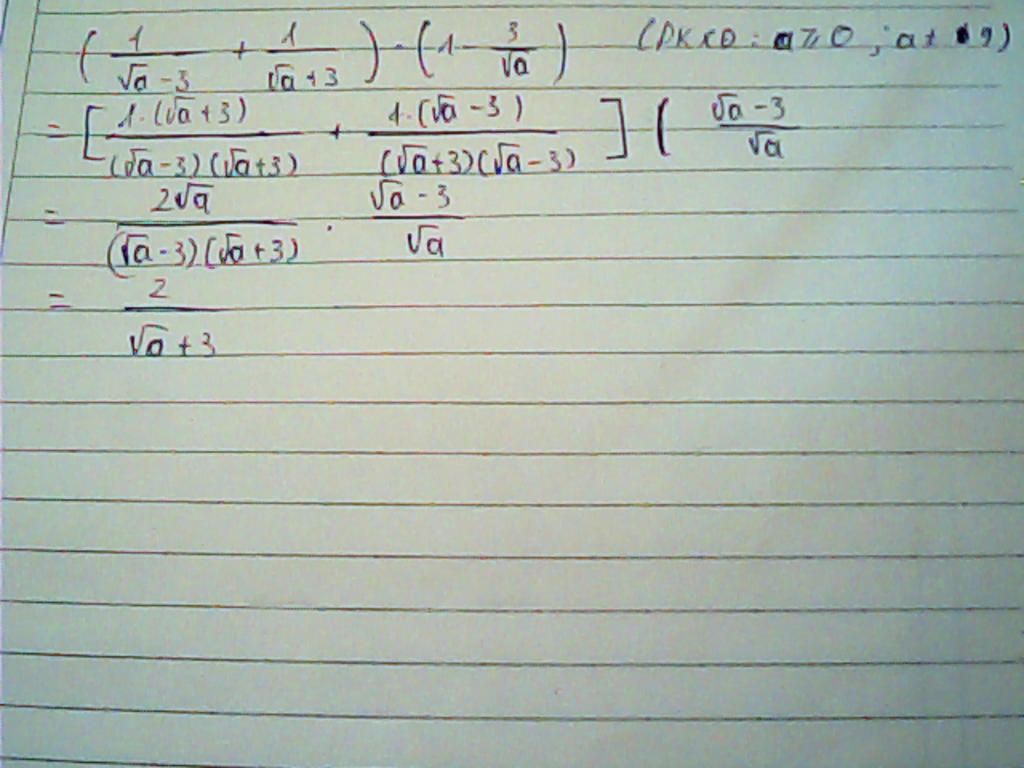 ( 1/(√a - 3) + 1/(√a + 3) ) . ( 1 - 3/√a ) (ĐKXĐ : a ≥ 0 ; a ≠ 9)
= [ 1.(√a + 3)/((√a - 3)(√a + 3)) + 1.(√a - 3)/((√a + 3)(√a - 3)) ] ( (√a - 3)/√a
= 2√a/((√a - 3)(√a + 3)) . (√a - 3)/√a
= 2/(√a + 3)